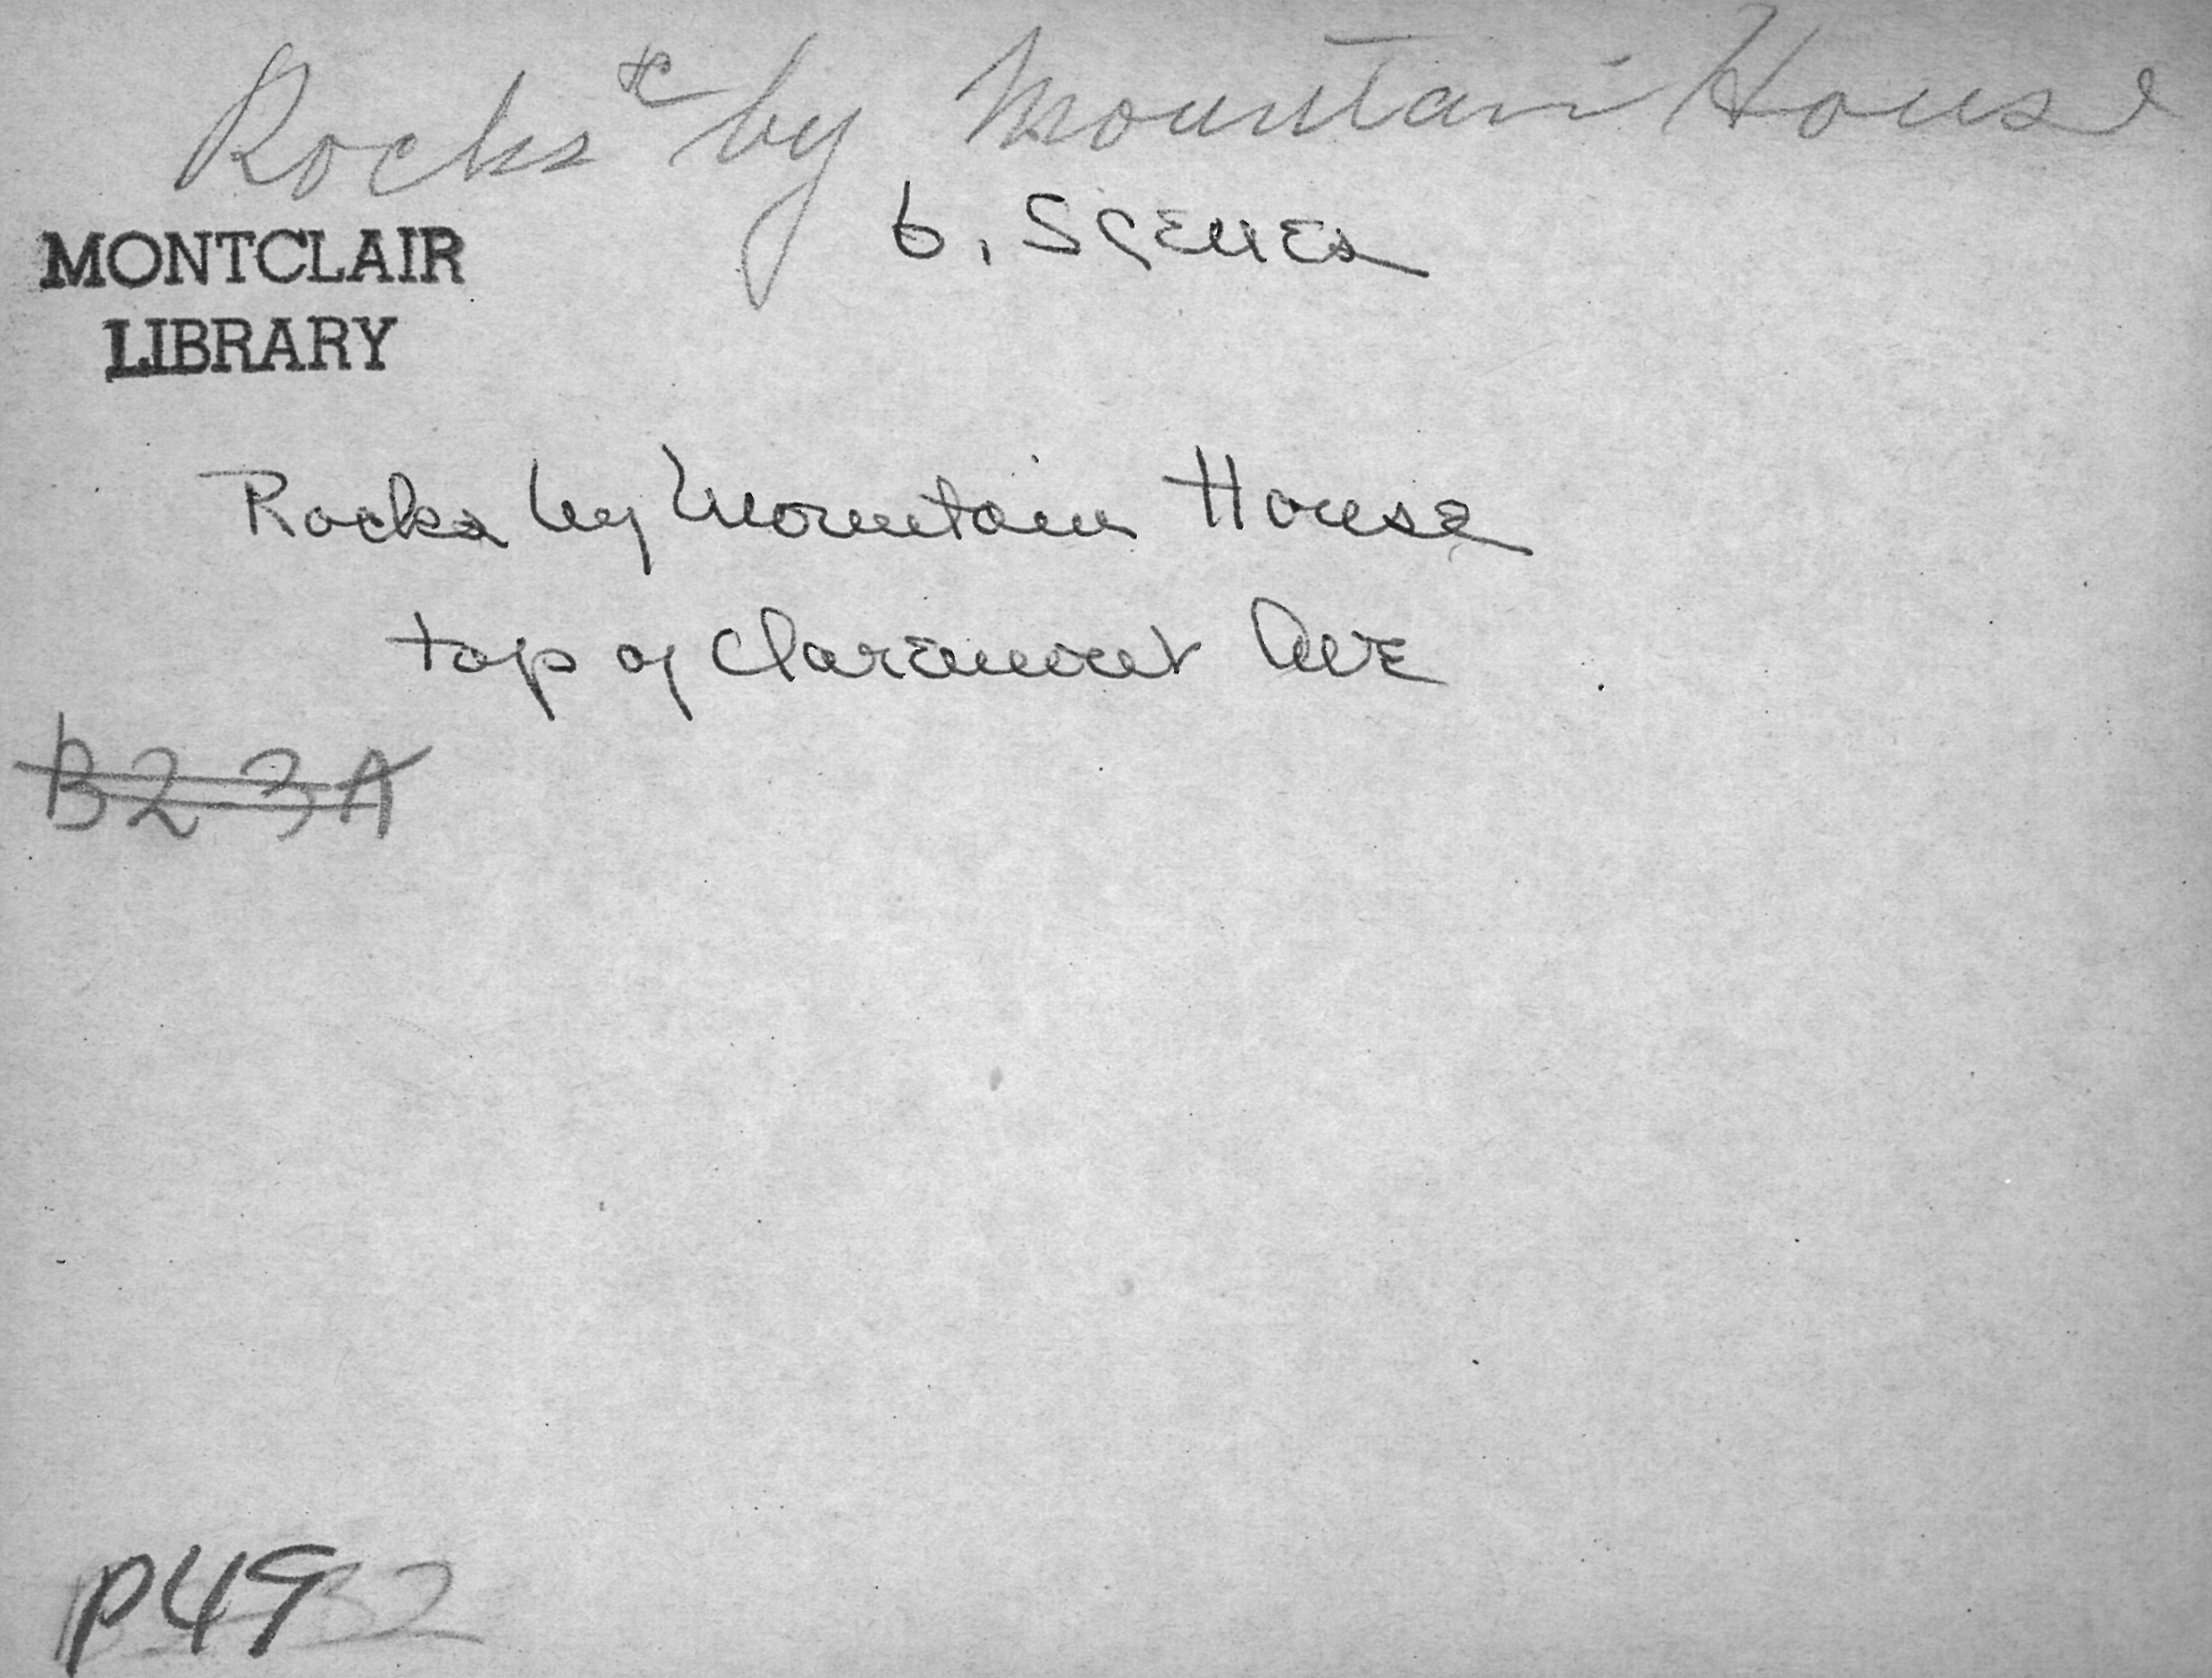 Rocks by Mountain House
6. Scenes
MONTCLAIR
LIBRARY
Rocks by Mountain House
top of Claremont Ave
B2-3A
P49